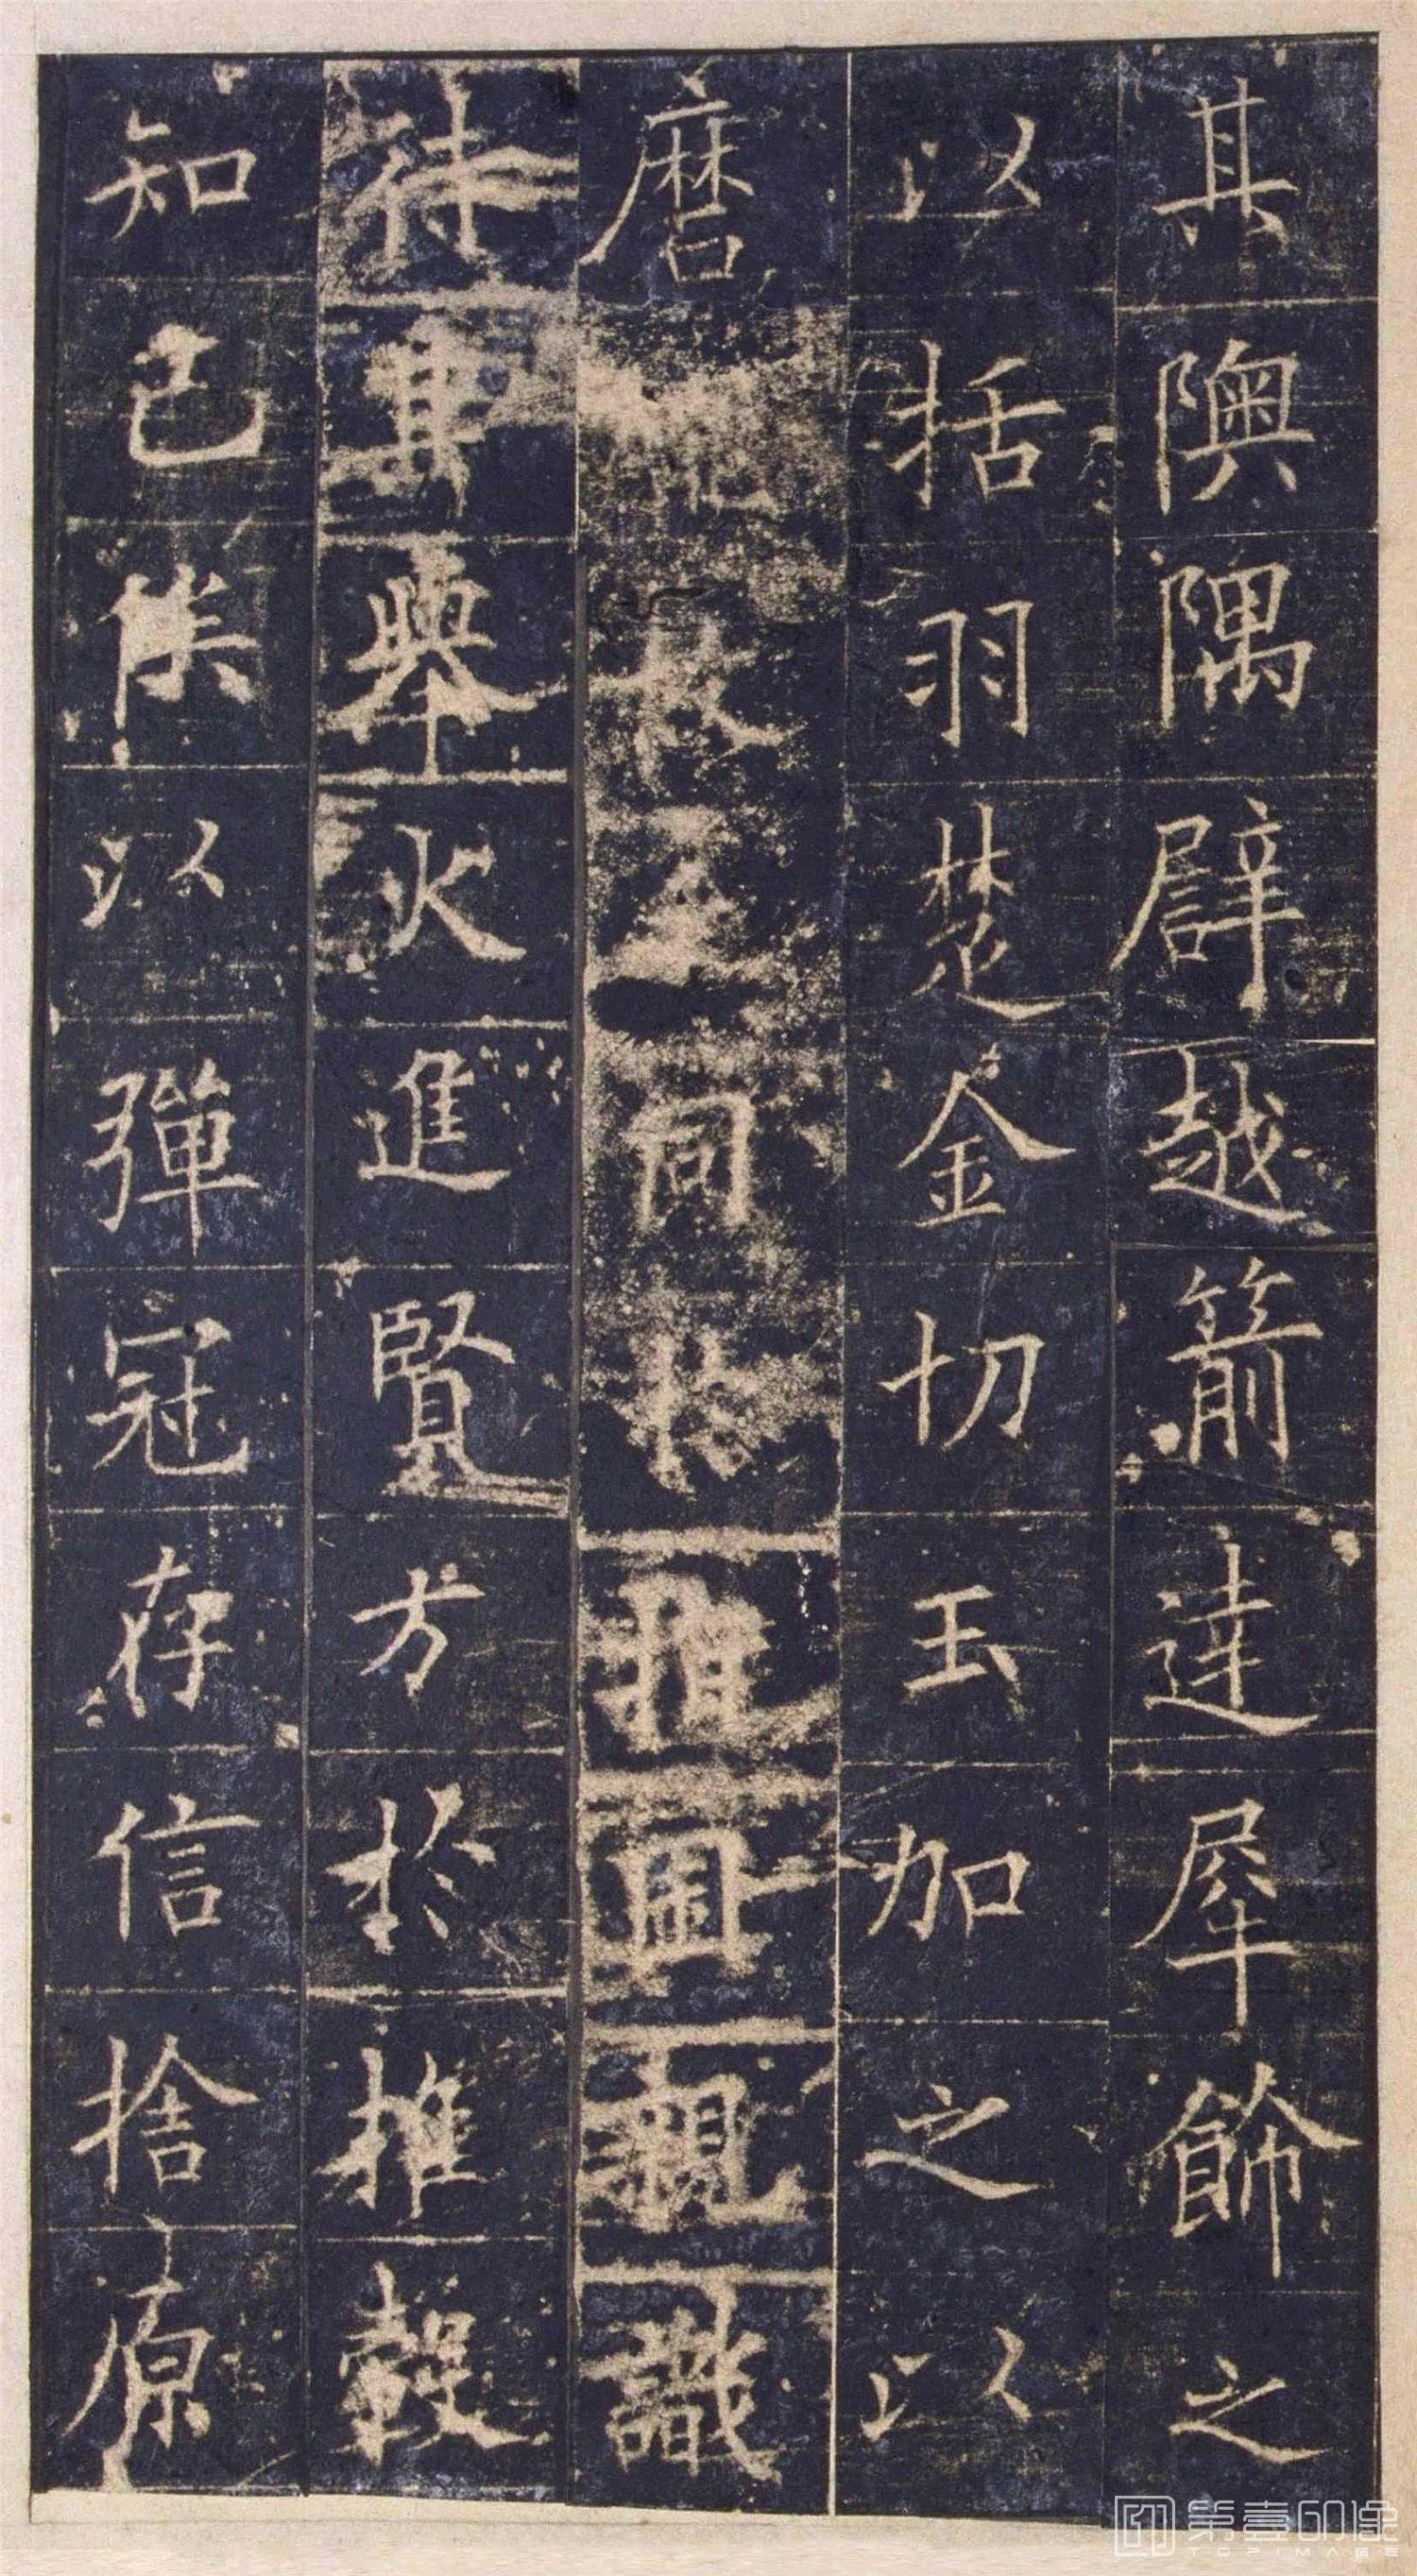 其隩隅辟越箭達犀飾之
以括羽楚金切玉加之以
磨同推圖親識
待其舉火進賢方於推轂
知己俟以彈冠存信捨原
第壹印像
TOPIMAGE